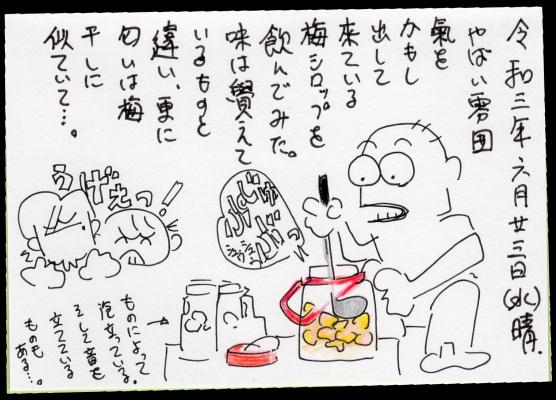 令和三年六月廿三日(水)晴.
やばい雰囲
氣を
かもし
出して
来ている
梅シロップを
飲んでみた。
味は覺えて
いるものと
違い、更に
匂いは梅
干しに
似ていて…。
うげえっ!
ものによって
泡立っている。
そして音を
立てている
ものも
ある…。